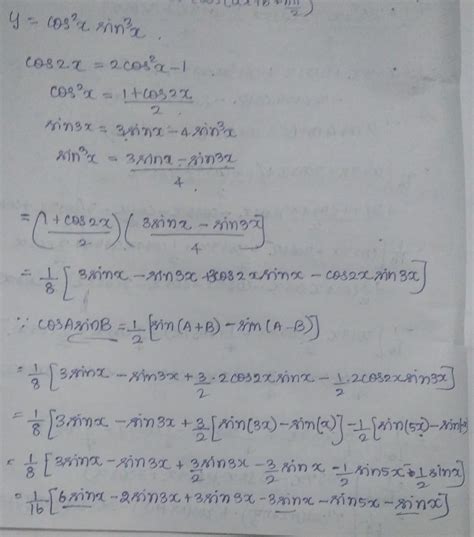 cos(ax+b+nπ/2)
y = cos²x sin³x
cos2x = 2cos²x-1
cos²x = 1+cos2x/2
sin3x = 3sinx - 4sin³x
sin³x = 3sinx - sin3x/4
= (1+cos2x/2)(3sinx - sin3x/4]
= 1/8 [3sinx - sin3x + 3cos2x sinx - cos2x sin3x]
∵ cosAsinB = 1/2 [sin(A+B) - sin(A-B)]
= 1/8 [3sinx - sin3x + 3/2 · 2cos2x sinx - 1/2 · 2cos2x sin3x]
= 1/8 [3sinx - sin3x + 3/2 [sin(3x) - sin(x)] - 1/2 [sin(5x) - sin(
= 1/8 [3sinx - sin3x + 3/2 sin3x - 3/2 sinx - 1/2 sin5x - 1/2 sinx]
= 1/16 [6sinx - 2sin3x + 3sin3x - 3sinx - sin5x - sinx]